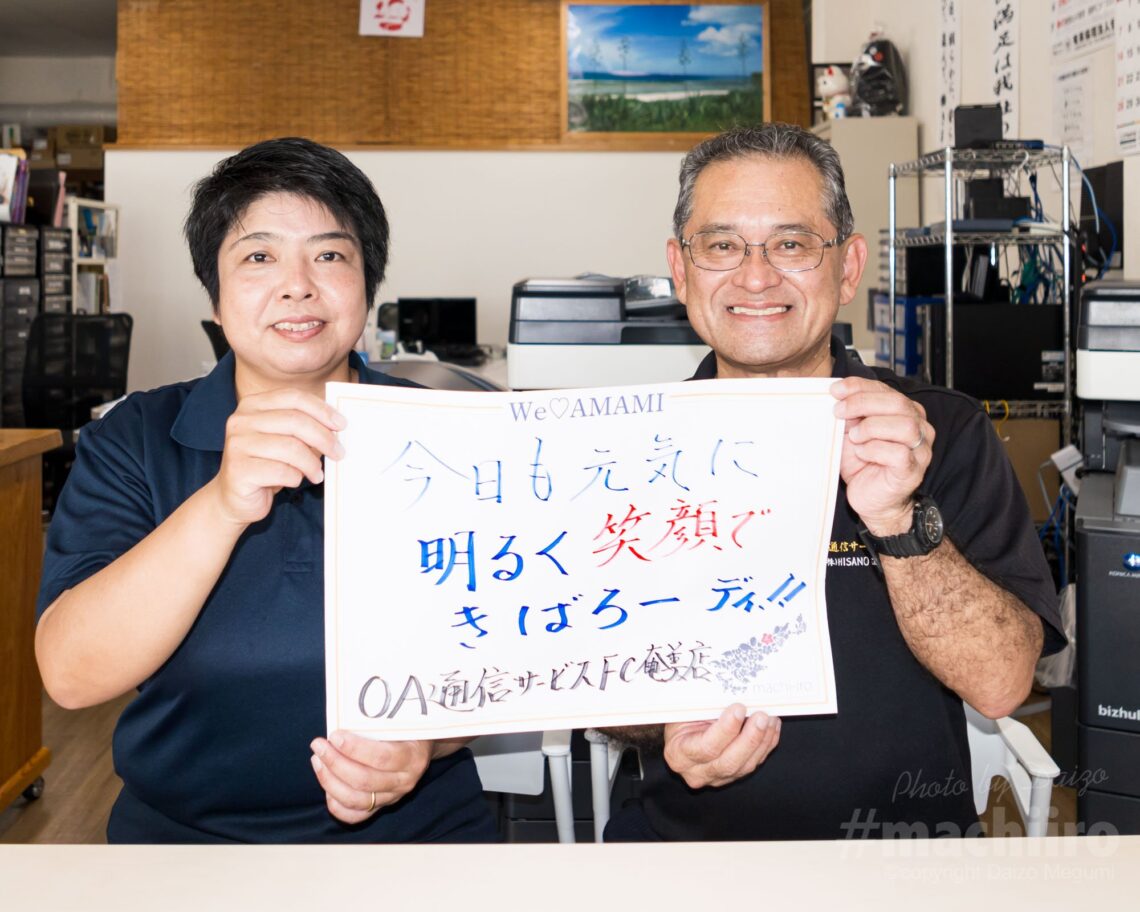 We♡AMAMI
今日も元気に
明るく笑顔で
きばろーディ!!
OA通信サービスFC奄美店
machi-iro
通信サー
(株)HISANO
bizhub
Photo by Daizo
#machiiro
©copyright Daizo Megumi